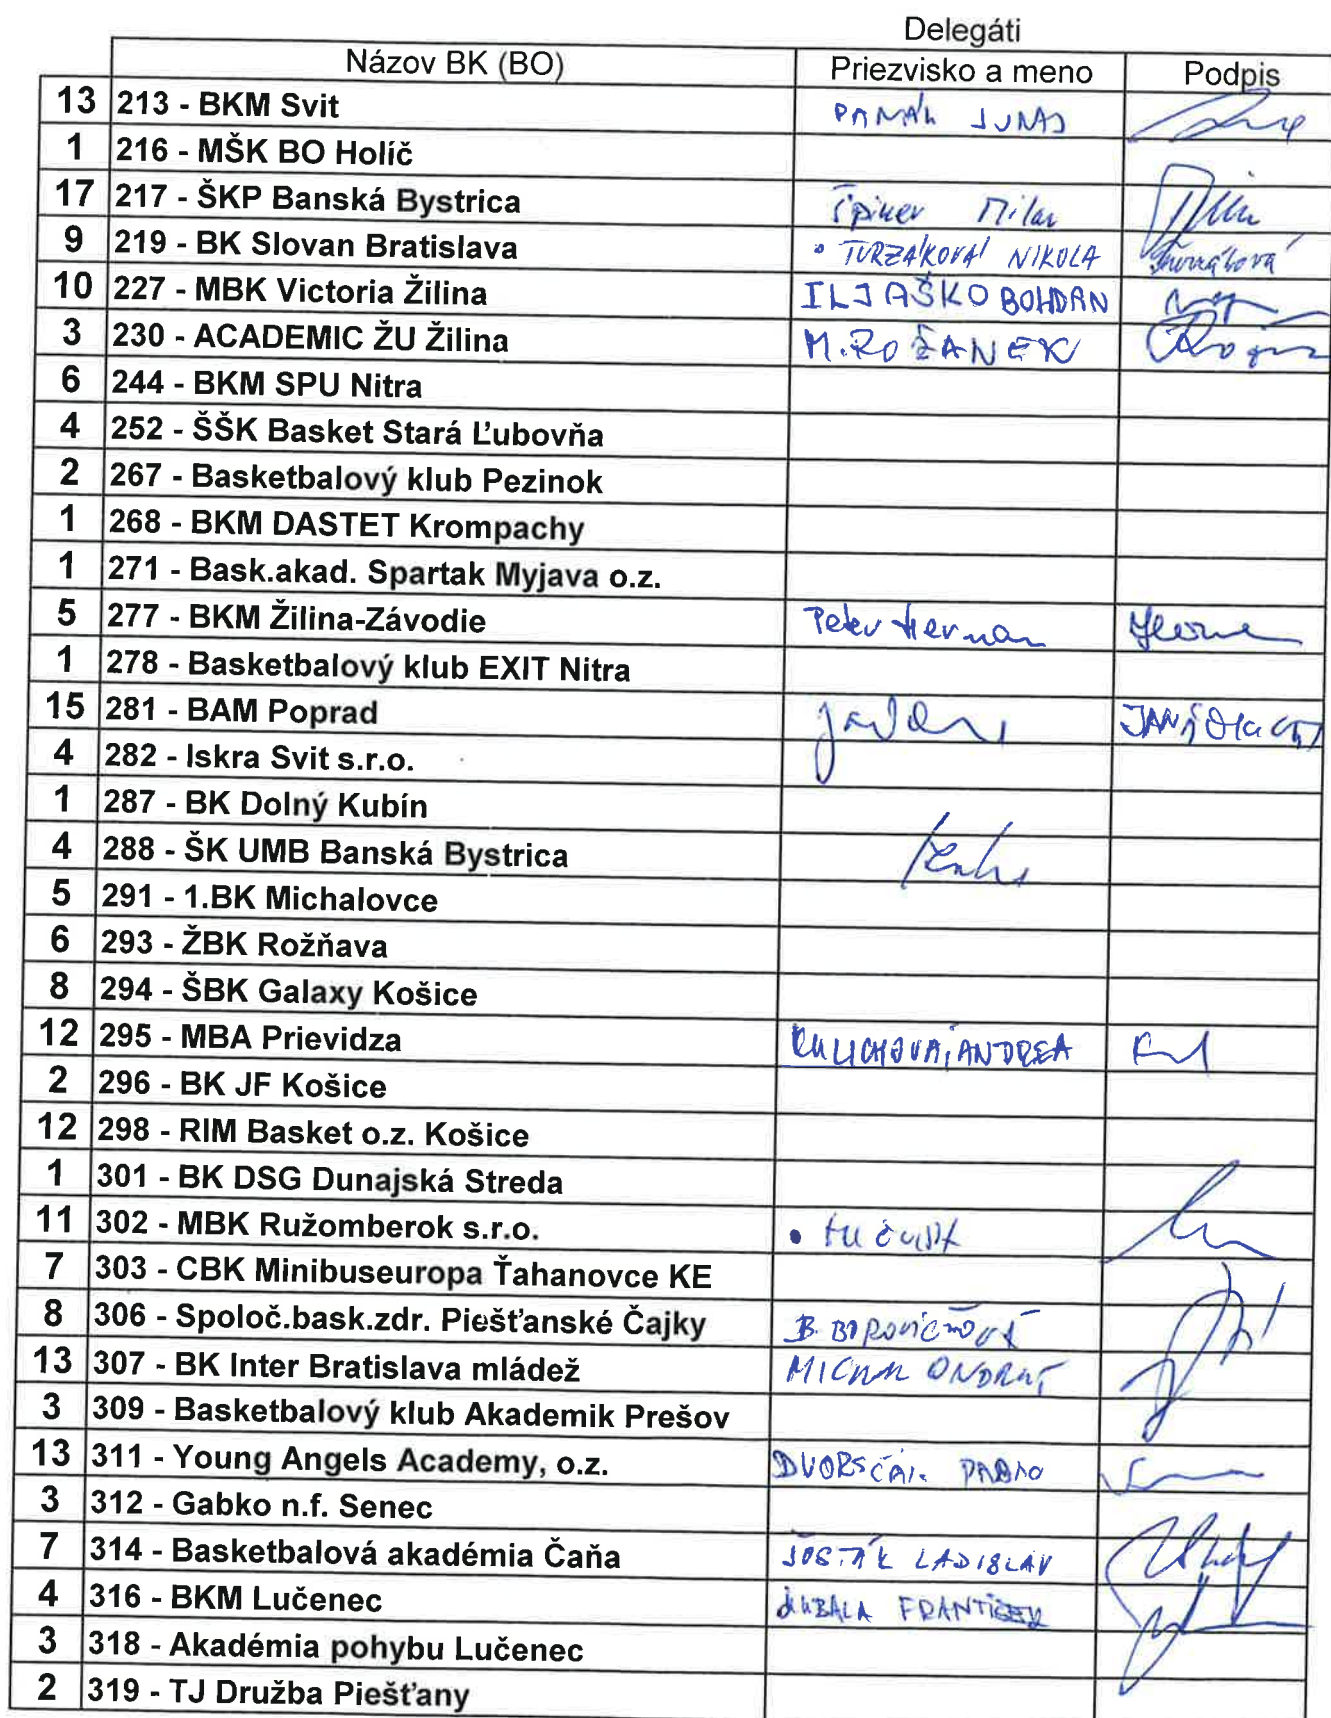 Delegáti
Názov BK (BO) Priezvisko a meno Podpis
13 213 - BKM Svit
1 216 - MŠK BO Holíč
17 217 - ŠKP Banská Bystrica Milan
9 219 - BK Slovan Bratislava TURZÁKOVÁ NIKOLA
10 227 - MBK Victoria Žilina ILJAŠKO BOHDAN
3 230 - ACADEMIC ŽU Žilina M. ROŽÁNEK
6 244 - BKM SPU Nitra
4 252 - ŠŠK Basket Stará Ľubovňa
2 267 - Basketbalový klub Pezinok
1 268 - BKM DASTET Krompachy
1 271 - Bask.akad. Spartak Myjava o.z.
5 277 - BKM Žilina-Závodie Peter Herman
1 278 - Basketbalový klub EXIT Nitra
15 281 - BAM Poprad
4 282 - Iskra Svit s.r.o.
1 287 - BK Dolný Kubín
4 288 - ŠK UMB Banská Bystrica
5 291 - 1.BK Michalovce
6 293 - ŽBK Rožňava
8 294 - ŠBK Galaxy Košice
12 295 - MBA Prievidza ANDREA
2 296 - BK JF Košice
12 298 - RIM Basket o.z. Košice
1 301 - BK DSG Dunajská Streda
11 302 - MBK Ružomberok s.r.o.
7 303 - CBK Minibuseuropa Ťahanovce KE
8 306 - Spoloč.bask.zdr. Piešťanské Čajky B.
13 307 - BK Inter Bratislava mládež
3 309 - Basketbalový klub Akademik Prešov
13 311 - Young Angels Academy, o.z.
3 312 - Gabko n.f. Senec
7 314 - Basketbalová akadémia Čaňa LADISLAV
4 316 - BKM Lučenec FRANTIŠEK
3 318 - Akadémia pohybu Lučenec
2 319 - TJ Družba Piešťany